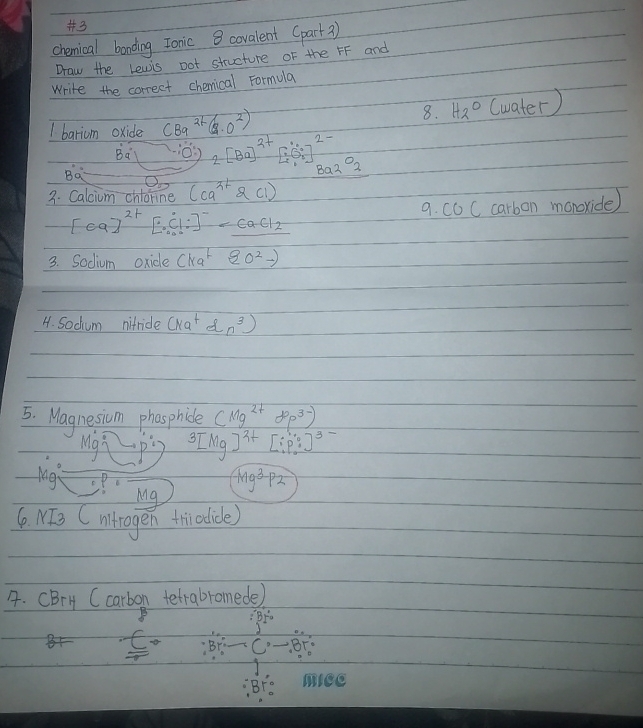 #3
chemical bonding Ionic & covalent (part 3)
Draw the Lewis Dot structure of the FF and
Write the correct chemical Formula
1 barium oxide (Ba 2+ & O2)
Ba O 2 [Ba]2+ [O]2-
Ba O Ba2O2
2. Calcium chlorine (ca2+ & Cl)
[ca]2+ [Cl]- = CaCl2
3. Sodium oxide (Na+ & O2-)
4. Sodium nitride (Na+ & n3)
5. Magnesium phosphide (Mg2+ & p3-)
Mg P 3[Mg]2+ [P]3-
Mg P Mg Mg3P2
6. NI3 ( nitrogen triiodide)
7. CBr4 ( carbon tetrabromede)
Br
Br C Br — C — Br
Br
mice
8. H2O (water)
9. CO ( carbon monoxide)